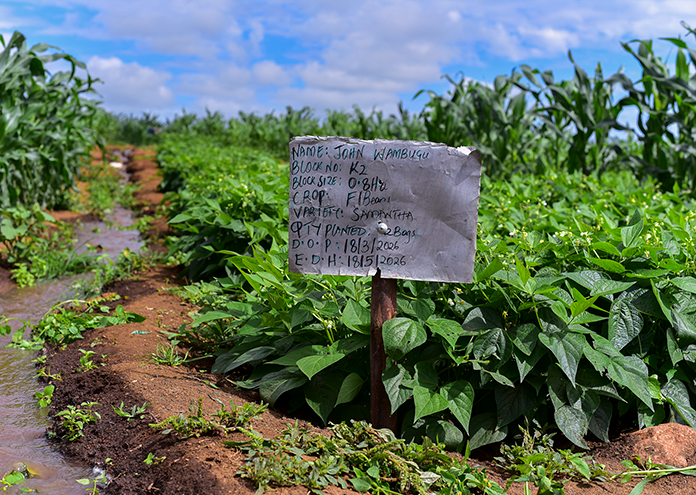 NAME: JOHN WAMBUGU
BLOCK NO: K2
BLOCK SIZE: 0.8Ha
CROP: F/Beans
VARIETY: SAMANTHA
QTY PLANTED: 2Bags
D.O.P: 18/3/2026
E.D.H: 18/5/2026